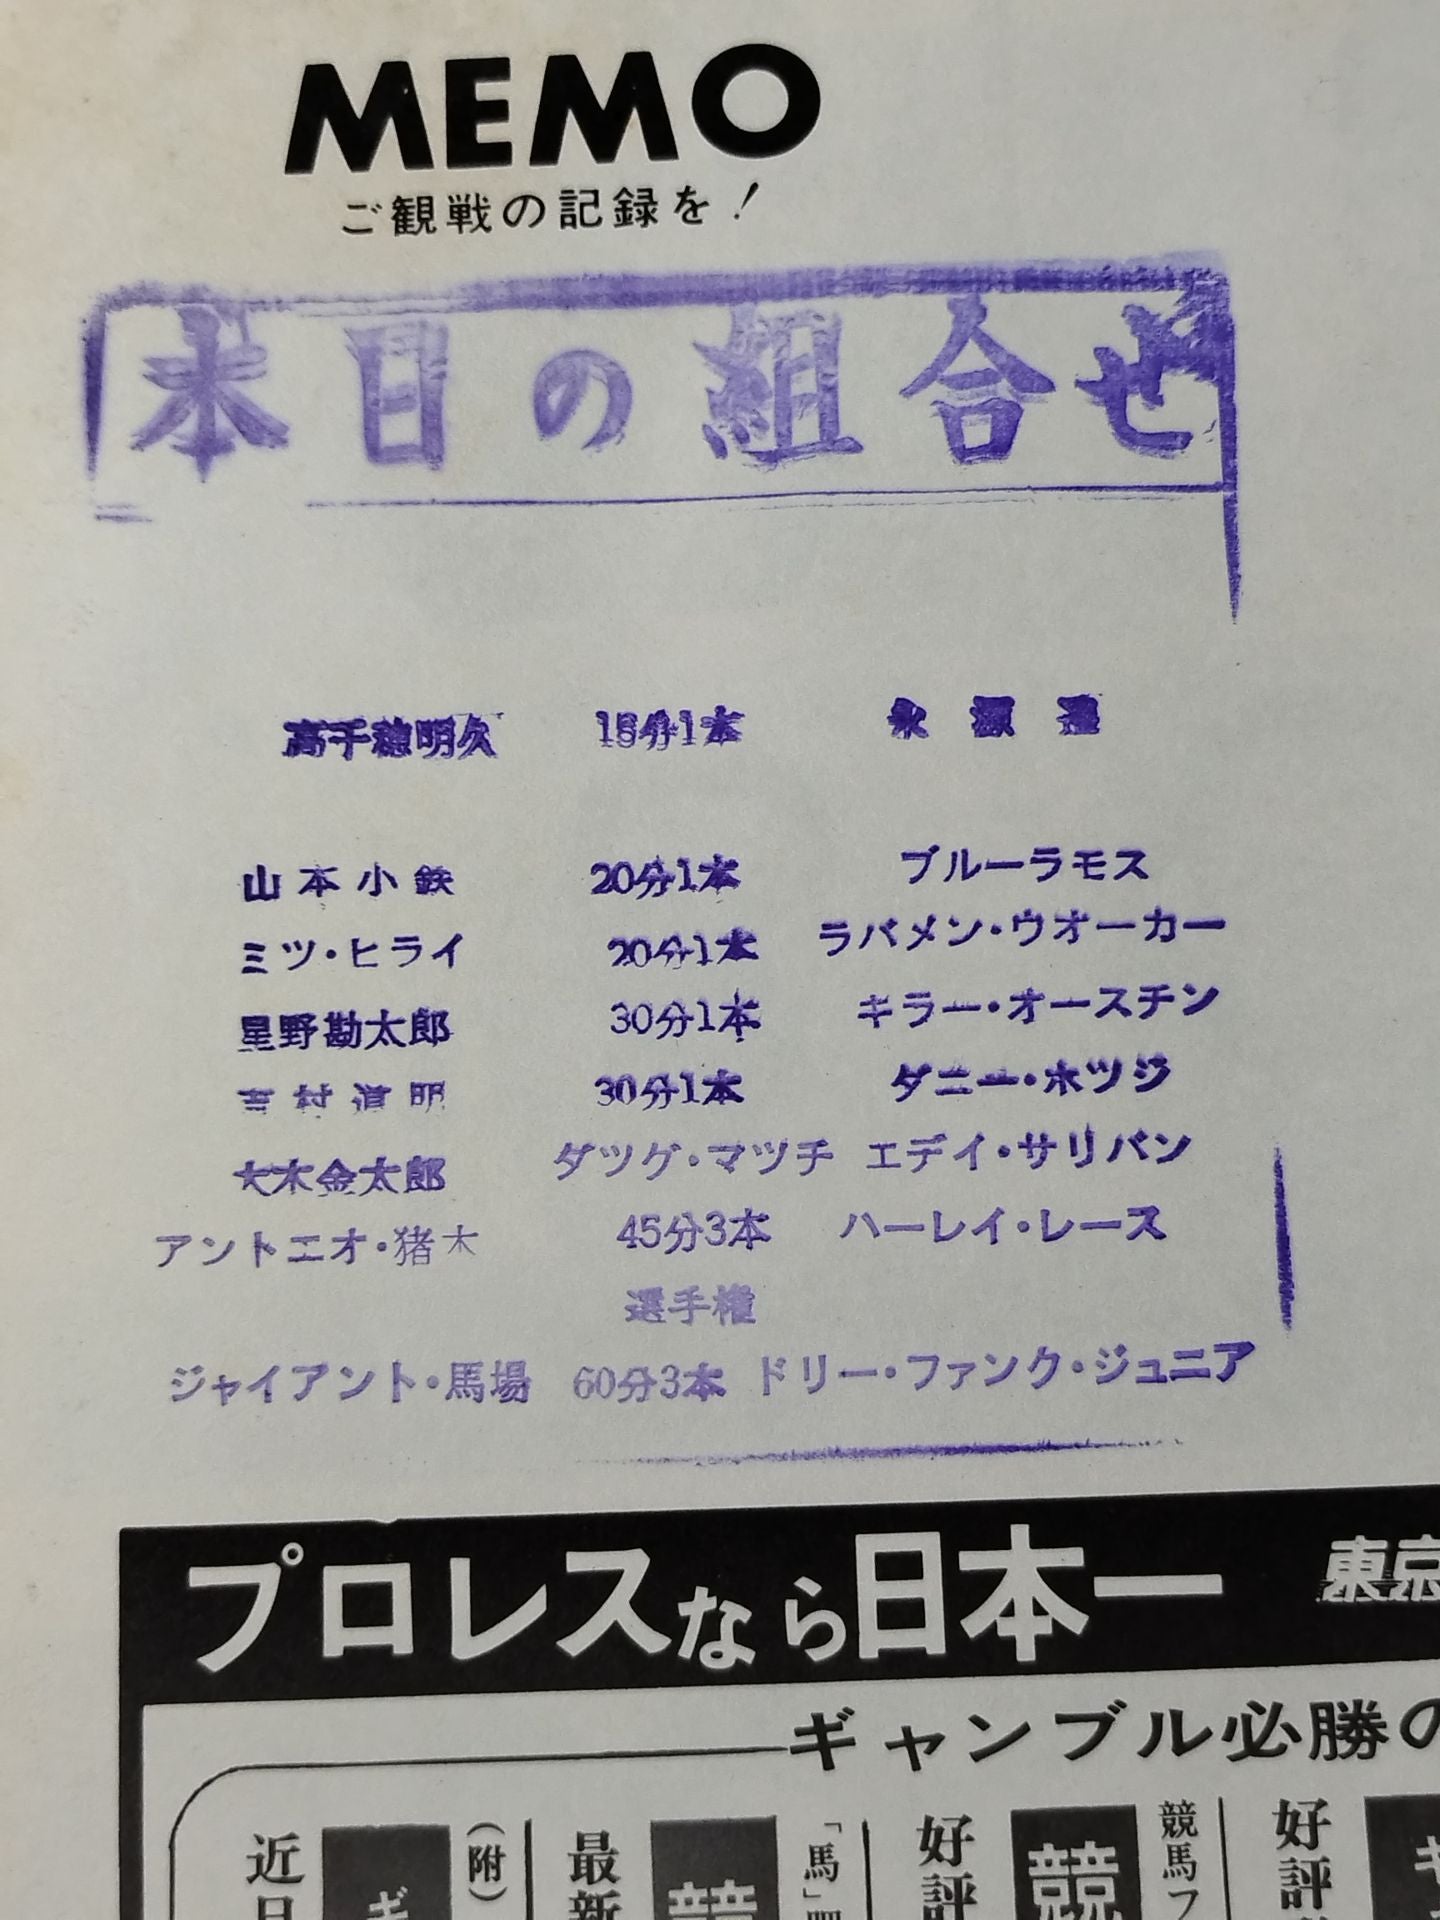 MEMO
ご観戦の記録を！
本日の組合せ
高千穂明久 15分1本 永源遙
山本小鉄 20分1本 ブルーラモス
ミツ・ヒライ 20分1本 ラバメン・ウオーカー
星野勘太郎 30分1本 キラー・オースチン
吉村道明 30分1本 ダニー・ホツジ
大木金太郎 ダツグ・マツチ エデイ・サリバン
アントニオ・猪木 45分3本 ハーレイ・レース
選手権
ジャイアント・馬場 60分3本 ドリー・ファンク・ジュニア
プロレスなら日本一 東京
ギャンブル必勝の
好評
競馬フ
競
好評
「馬」
最新
(附)
ギ
近日